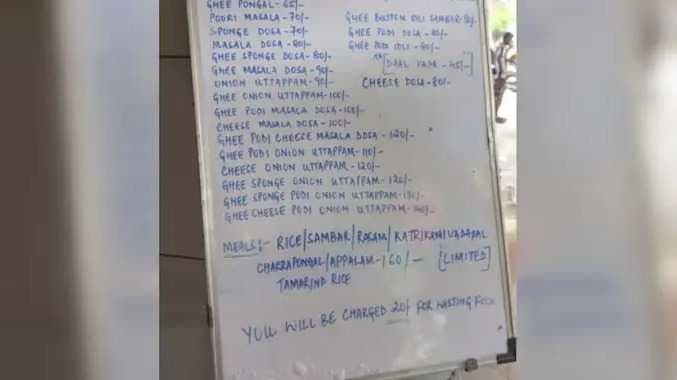 GHEE PONGAL - 65/-
POORI MASALA - 70/-
SPONGE DOSA - 70/-
MASALA DOSA - 80/-
GHEE SPONGE DOSA - 80/-
GHEE MASALA DOSA - 90/-
ONION UTTAPPAM - 90/-
GHEE ONION UTTAPPAM - 100/-
GHEE PODI MASALA DOSA - 100/-
CHEESE MASALA DOSA - 100/-
GHEE PODI CHEESE MASALA DOSA - 120/-
GHEE PODI ONION UTTAPPAM - 110/-
CHEESE ONION UTTAPPAM - 120/-
GHEE SPONGE ONION UTTAPPAM - 120/-
GHEE SPONGE PODI ONION UTTAPPAM - 130/-
GHEE CHEESE PODI ONION UTTAPPAM - 140/-
GHEE BUTTON IDLI SAMBAR
GHEE PODI DOSA - 80/-
GHEE PODI IDLI - 80/-
[DAAL VADA - 45/-]
CHEESE DOSA - 80/-
MEALS:- RICE/SAMBAR/RASAM/KATRIKAI VADAYAL
CHAKRAPONGAL/APPALAM - 160/- [LIMITED]
TAMARIND RICE
YOU WILL BE CHARGED 20/- FOR WASTING FOOD